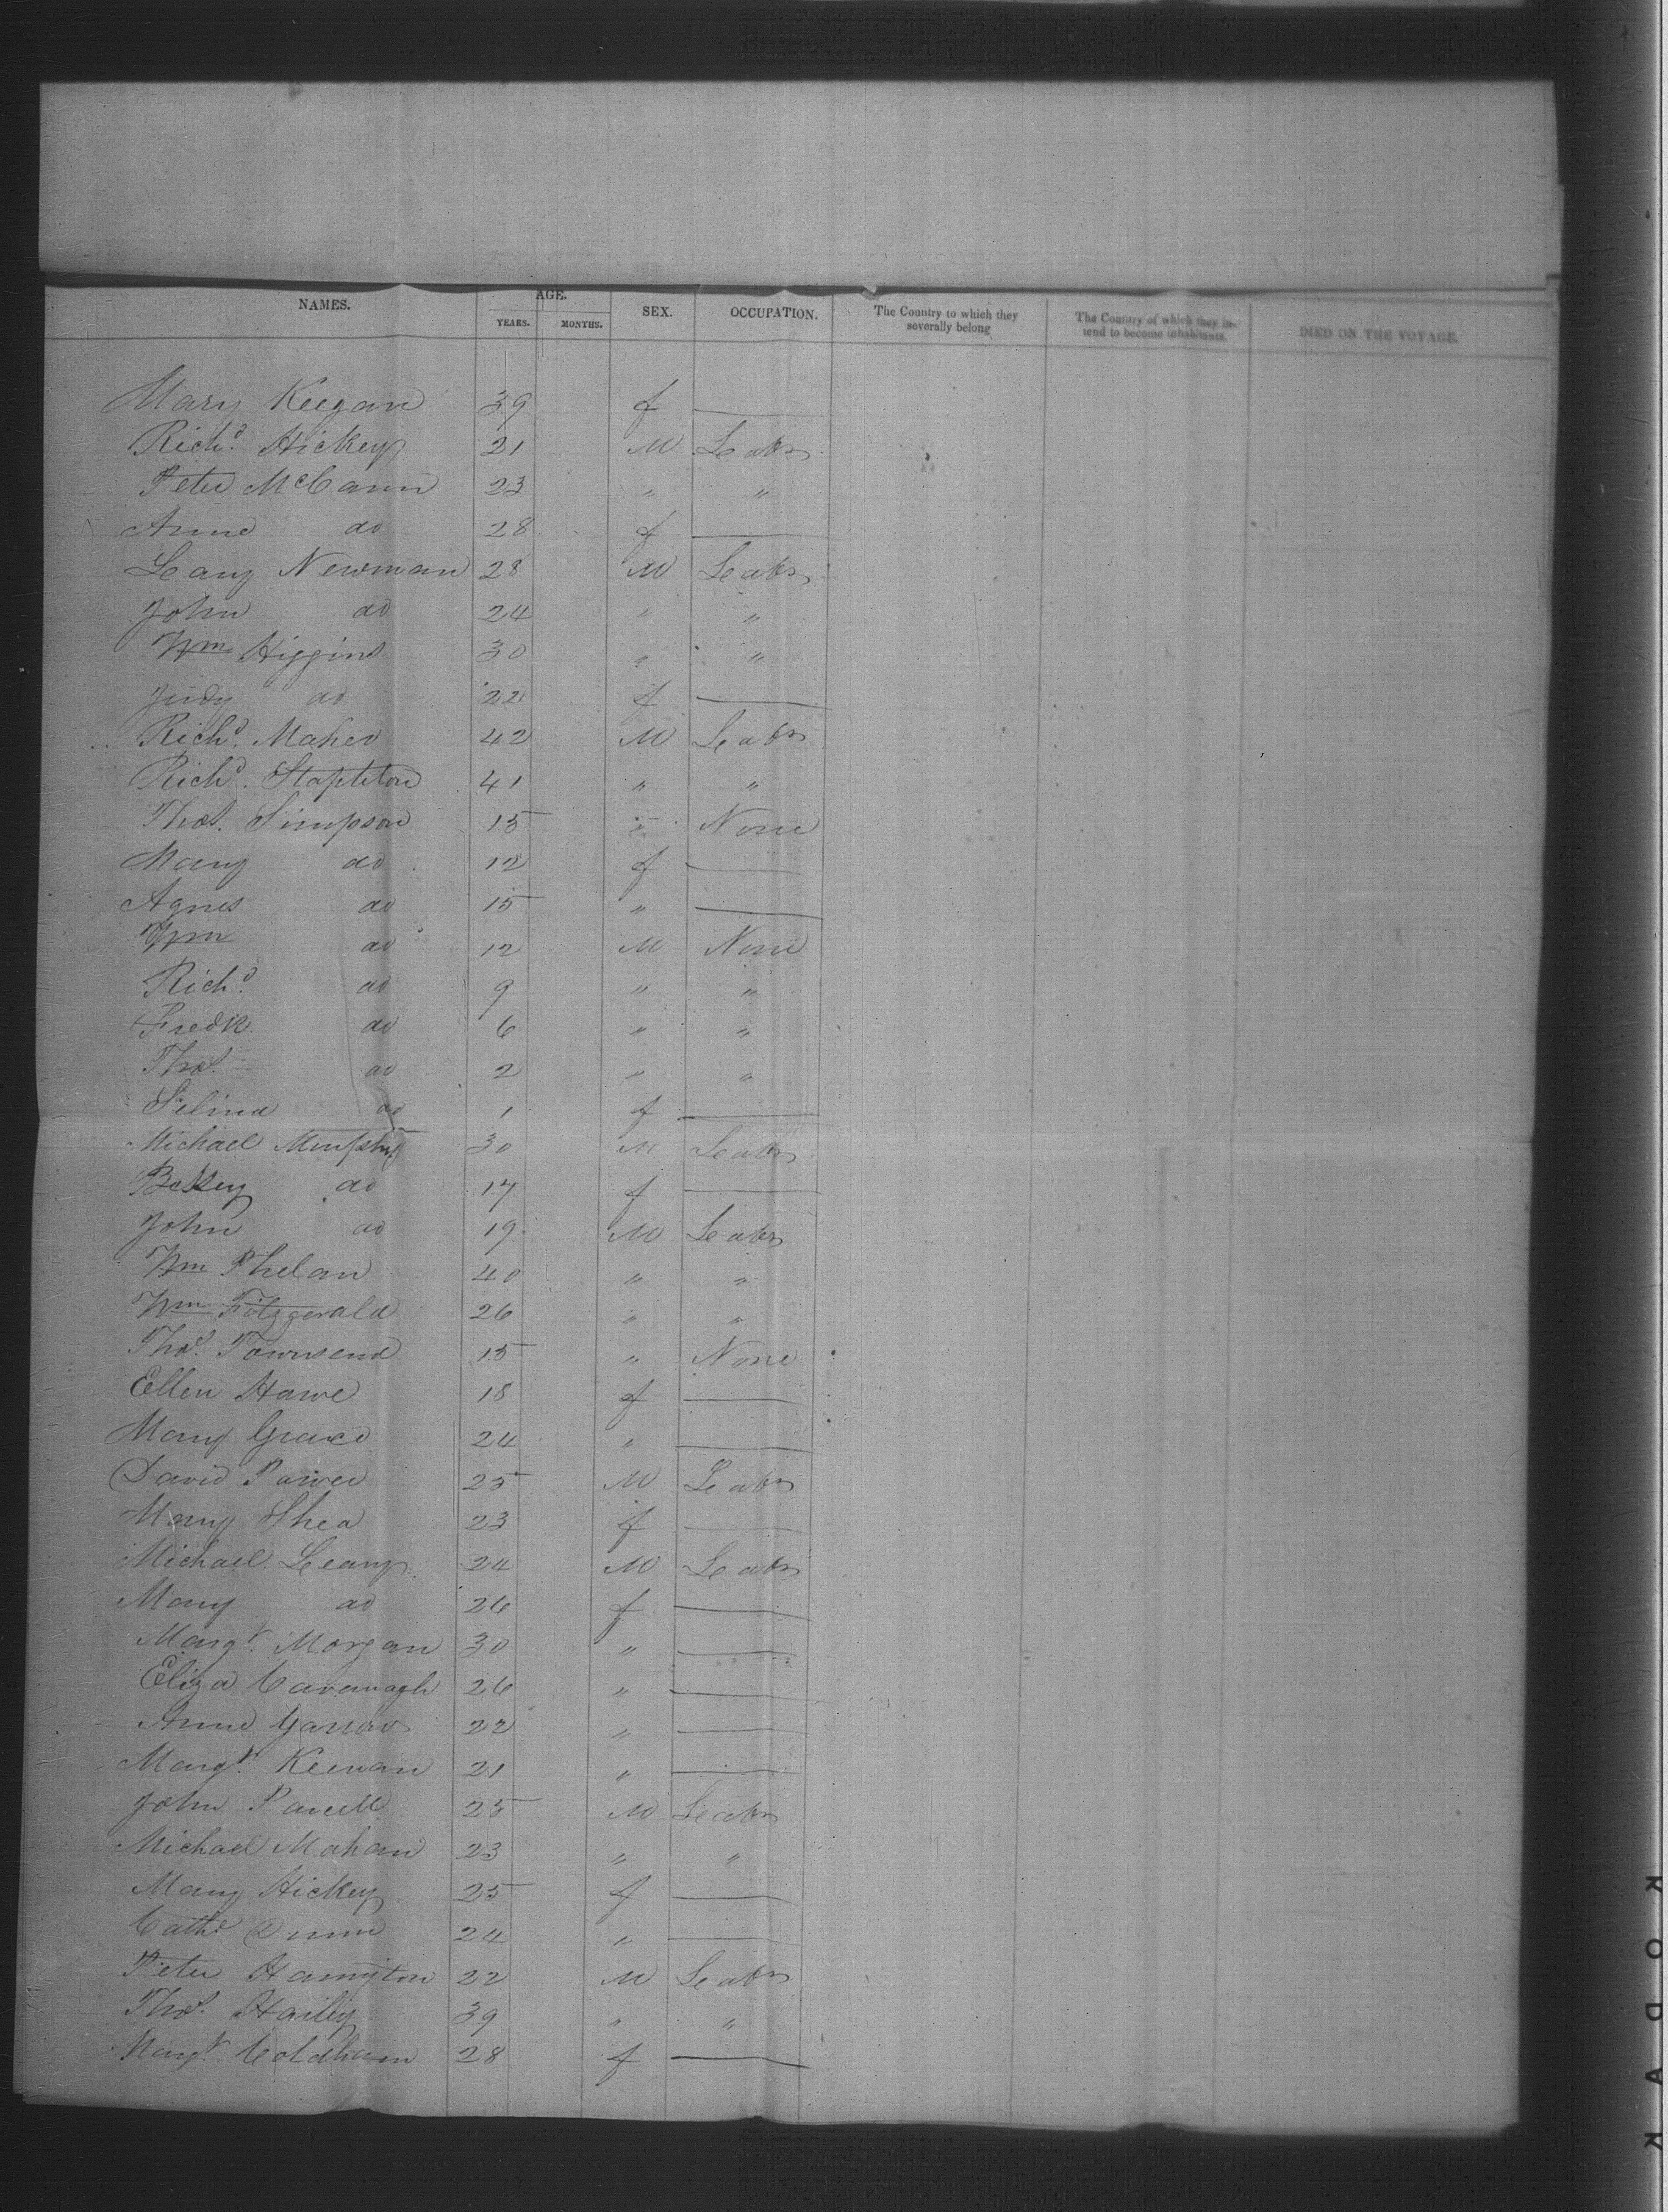 NAMES. AGE. SEX. OCCUPATION. The Country to which they severally belong The Country of which they intend to become inhabitants. DIED ON THE VOYAGE.
YEARS. MONTHS.
Mary Keegan 39 f —
Richd. Hickey 21 M Leabr
Peter McCann 23 " "
Anne do 28 f —
Leary Newman 28 M Leabr
John do 24 " "
Wm Higgins 30 " "
Judy do 22 f —
Richd. Maher 42 M Leabr
Richd. Stapleton 41 " "
Thos. Simpson 15 " None
Mary do 12 f —
Agnes do 15 " —
Wm do 12 M None
Richd. do 9 " "
Fredk. do 6 " "
Thos. do 2 " "
Selina do 1 f —
Michael Murphy 30 M Leabr
Betsey do 17 f —
John do 19 M Leabr
Wm Phelan 40 " "
Wm Fitzgerald 26 " "
Thos. Townsend 15 " None
Ellen Hawe 18 f —
Mary Grace 24 " —
David Power 25 M Leabr
Mary Shea 23 f —
Michael Leary 24 M Leabr
Mary do 26 f —
Margt. Morgan 30 " —
Eliza Cavanagh 26 " —
Anne 22 " —
Margt. Keenan 21 " —
John 25 M Leabr
Michael Mahan 23 " "
Mary Hickey 25 f —
Cathe Dunne 24 " —
Peter Harrington 22 M Leabr
Thos. Hailey 39 " "
Margt. 28 f —
KODAK